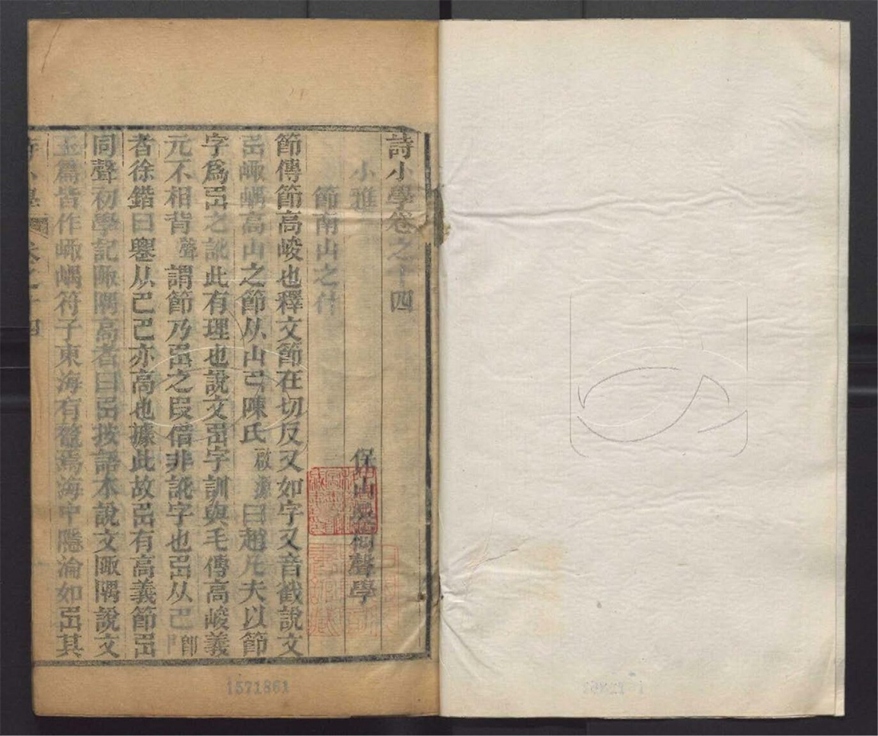 詩小學卷之十四
保山吳樹聲學
小雅
節南山之什
節傳節高峻也釋文節在切反又如字又音截說文
嵒陬嵎高山之節从山㔾陳氏啟源曰趙凡夫以節
字爲嵒之訛此有理也說文字訓與毛傳高峻義
元不相背聲謂節乃之叚借非訛字也从㔾卽
者徐鍇曰㔾从己己亦高也據此故有高義節
同聲初學記陬隅高者曰按語本說文陬隅說文
玉篇皆作陬嵎符子東海有鼇焉海中隱淪如其
詩小學 卷之十四
1571861